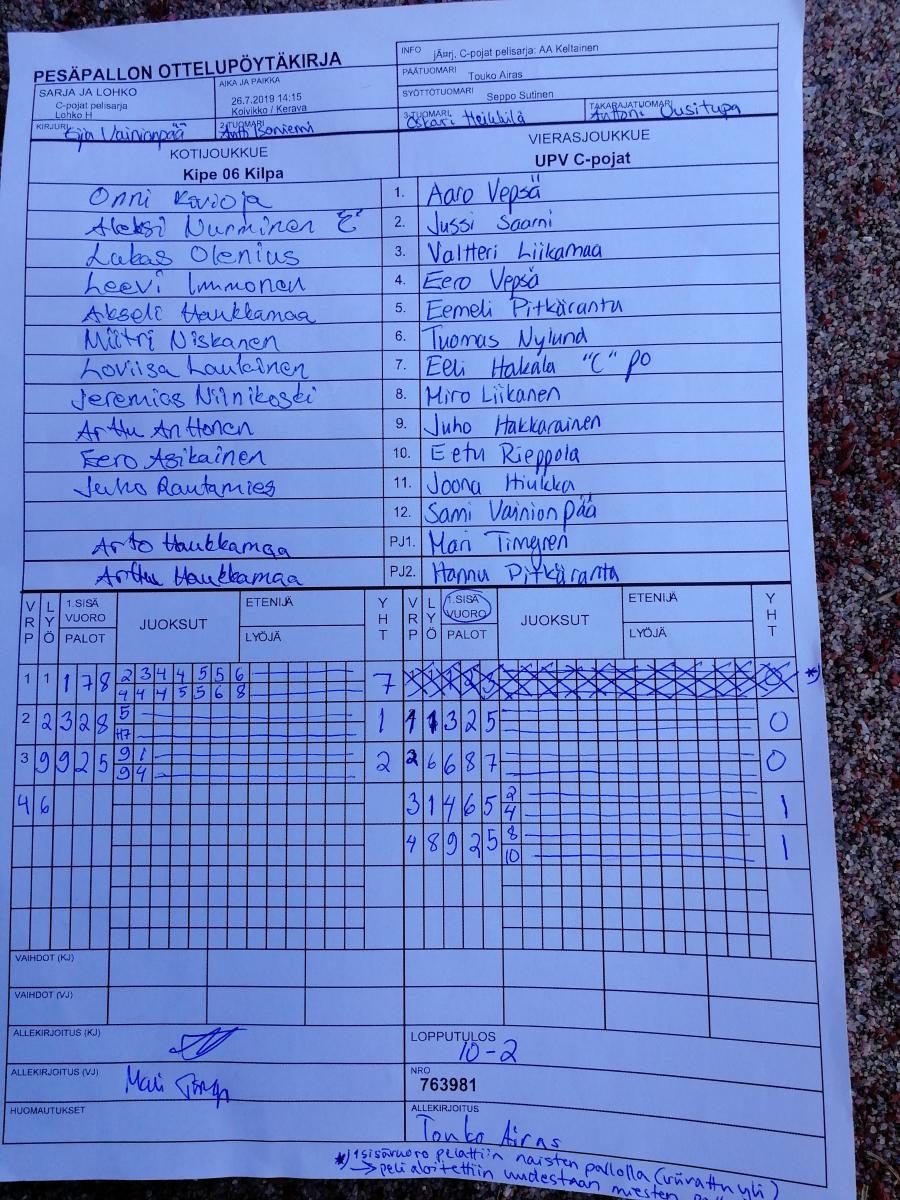 PESÄPALLON OTTELUPÖYTÄKIRJA
SARJA JA LOHKO
C-pojat pelisarja
Lohko H
AIKA JA PAIKKA
26.7.2019 14:15
Koivikko / Kerava
INFO jÃ¤rj. C-pojat pelisarja: AA Keltainen
PÄÄTUOMARI Touko Airas
SYÖTTÖTUOMARI Seppo Sutinen
KIRJURI Eija Vainionpää
2-TUOMARI Antti Isoniemi
3-TUOMARI Oskari Heikkilä
TAKARAJATUOMARI Anttoni Uusitupa
KOTIJOUKKUE VIERASJOUKKUE
Kipe 06 Kilpa UPV C-pojat
Onni Kavioja 1. Aaro Vepsä
Aleksi Nurminen "C" 2. Jussi Saarni
Lukas Olenius 3. Valtteri Liikamaa
Leevi Immonen 4. Eero Vepsä
Akseli Haukkamaa 5. Eemeli Pitkäranta
Miitri Niskanen 6. Tuomas Nylund
Loviisa Laukainen 7. Eeli Hakala "C" po
Jeremias Niinikoski 8. Miro Liikanen
Arttu Anttonen 9. Juho Hakkarainen
Eero Asikainen 10. Eetu Rieppola
Juho Rautamies 11. Joona Hiukka
12. Sami Vainionpää
Arto Haukkamaa PJ1. Mari Timgren
Arttu Haukkamaa PJ2. Hannu Pitkäranta
VRP LYÖ 1.SISÄ VUORO PALOT JUOKSUT ETENIJÄ LYÖJÄ YHT VRP LYÖ 1.SISÄ VUORO PALOT JUOKSUT ETENIJÄ LYÖJÄ YHT
1 1 1 7 8 2 3 4 4 5 5 6 7 0 *)
4 4 4 5 5 6 8
2 2 3 2 8 5 1 1 1 3 2 5 0
H7
3 9 9 2 5 9 1 2 2 6 6 8 7 0
9 4
4 6 3 1 4 6 5 2 1
4
4 8 9 2 5 8 1
10
VAIHDOT (KJ)
VAIHDOT (VJ)
ALLEKIRJOITUS (KJ)
LOPPUTULOS
10-2
ALLEKIRJOITUS (VJ) Mari
NRO
763981
HUOMAUTUKSET
ALLEKIRJOITUS
Touko Airas
*) 1 sisävuoro pelattiin naisten pallolla (viivattu yli)
→ peli aloitettiin uudestaan miesten